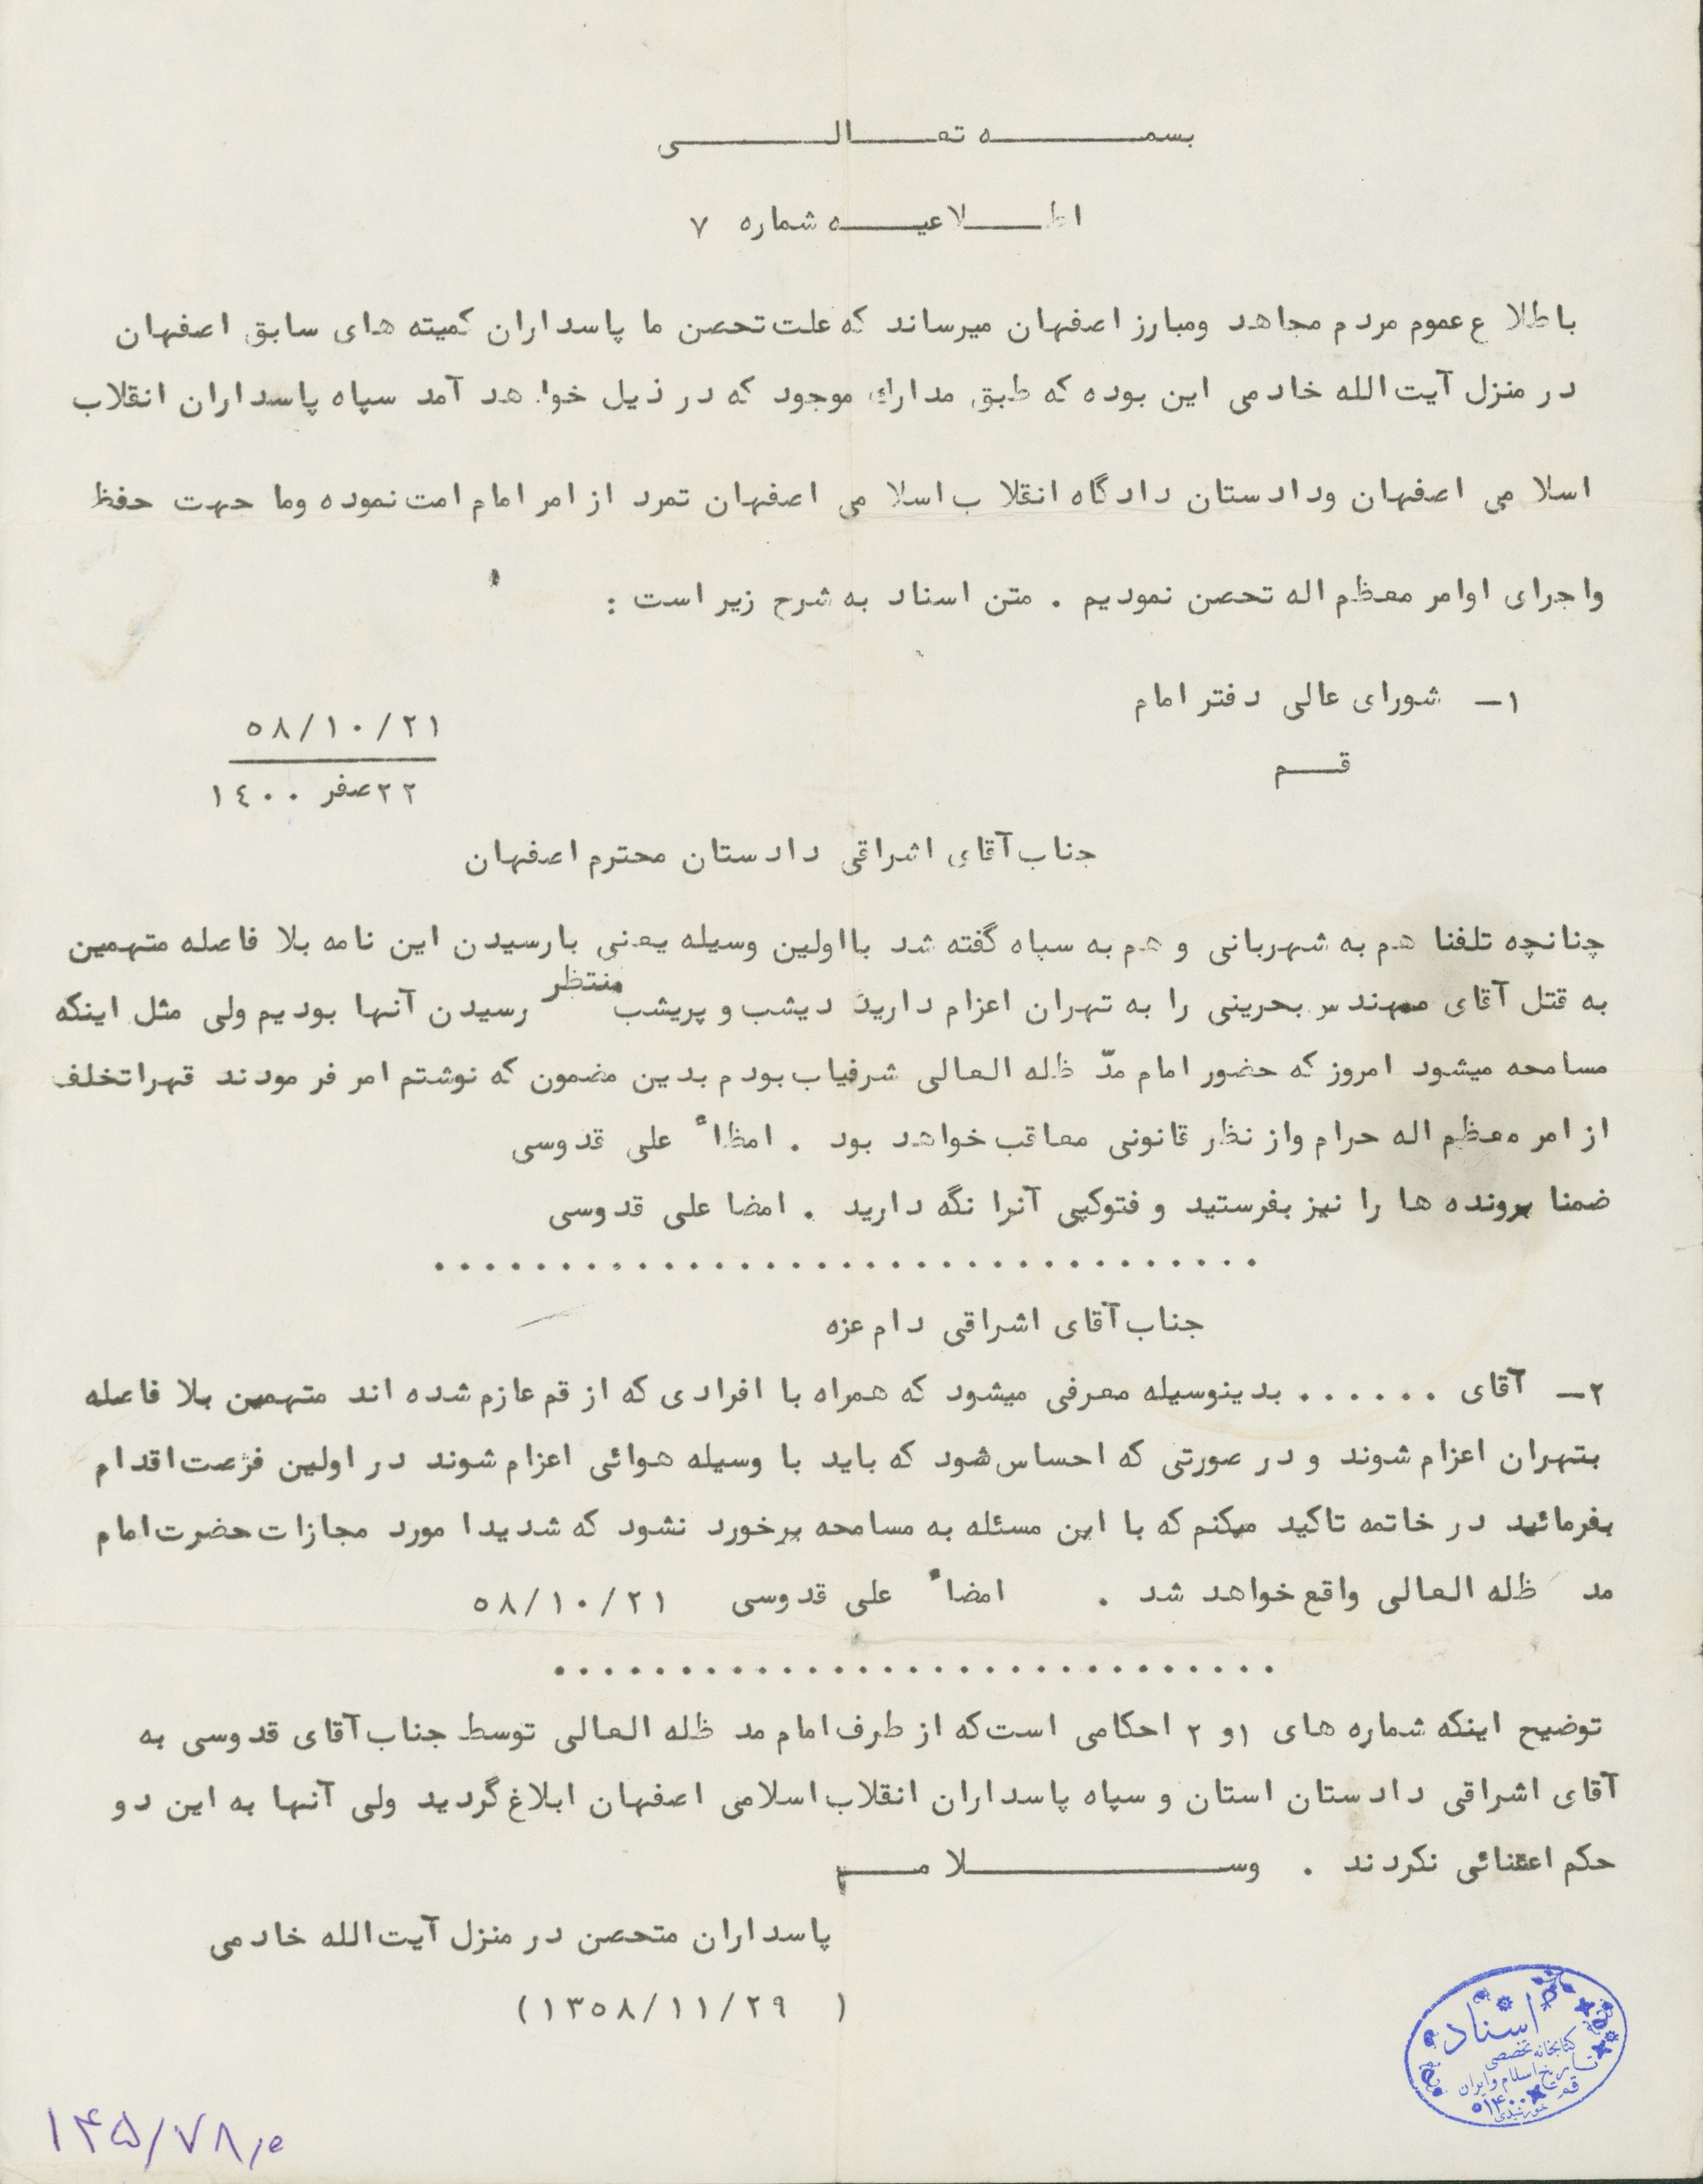 بسمه تعالی
اطلاعیه شماره ۷
باطلاع عموم مردم مجاهد ومبارز اصفهان میرساند که علت تحصن ما پاسداران کمیته های سابق اصفهان
در منزل آیت الله خادمی این بوده که طبق مدارک موجود که در ذیل خواهد آمد سپاه پاسداران انقلاب
اسلامی اصفهان ودادستان دادگاه انقلاب اسلامی اصفهان تمرد از امر امام امت نموده وما جهت حفظ
واجرای اوامر معظم اله تحصن نمودیم . متن اسناد به شرح زیر است :
۱- شورای عالی دفتر امام
قم
۵۸/۱۰/۲۱
۲۲ صفر ۱٤۰۰
جناب آقای اشراقی دادستان محترم اصفهان
چنانچه تلفنا هم به شهربانی و هم به سپاه گفته شد با اولین وسیله یعنی با رسیدن این نامه بلا فاصله متهمین
به قتل آقای مهندس بحرینی را به تهران اعزام دارید دیشب و پریشب منتظر رسیدن آنها بودیم ولی مثل اینکه
مسامحه میشود امروز که حضور امام مدّ ظله العالی شرفیاب بودم بدین مضمون که نوشتم امر فرمودند قهرا تخلف
از امر معظم اله حرام واز نظر قانونی معاقب خواهد بود . امظاء علی قدوسی
ضمنا پرونده ها را نیز بفرستید و فتوکپی آنرا نگه دارید . امضا علی قدوسی
.................................
جناب آقای اشراقی دام عزه
۲- آقای ...... بدینوسیله معرفی میشود که همراه با افرادی که از قم عازم شده اند متهمین بلا فاصله
بتهران اعزام شوند و در صورتی که احساس شود که باید با وسیله هوائی اعزام شوند در اولین فرصت اقدام
بفرمائید در خاتمه تاکید میکنم که با این مسئله به مسامحه برخورد نشود که شدیدا مورد مجازات حضرت امام
مد ظله العالی واقع خواهد شد . امضاء علی قدوسی ۵۸/۱۰/۲۱
.............................
توضیح اینکه شماره های ۱و ۲ احکامی است که از طرف امام مد ظله العالی توسط جناب آقای قدوسی به
آقای اشراقی دادستان استان و سپاه پاسداران انقلاب اسلامی اصفهان ابلاغ گردید ولی آنها به این دو
حکم اعتنائی نکردند . وسلام
پاسداران متحصن در منزل آیت الله خادمی
( ۱۳۵۸/۱۱/۲۹)
اسناد
کتابخانه تخصصی
تاریخ اسلام و ایران
قم
۱۴۵/۷۸٫۵